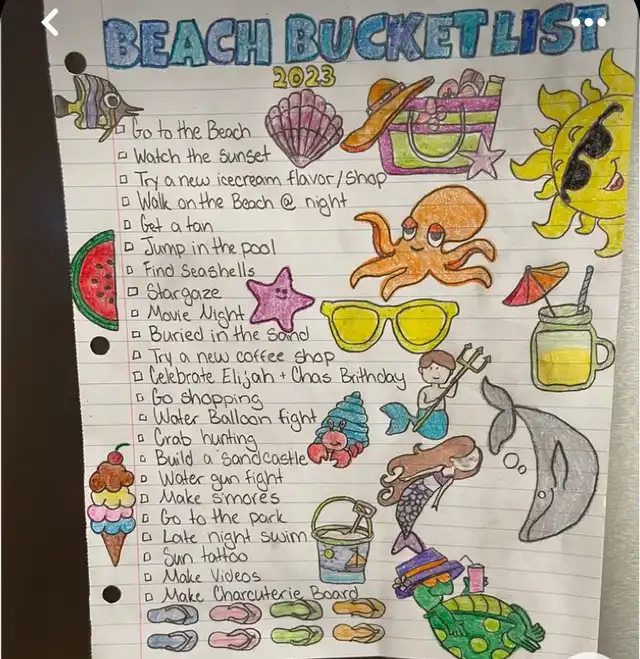 BEACH BUCKET LIST
2023
Go to the Beach
Watch the sunset
Try a new icecream flavor/shop
Walk on the Beach @ night
Get a tan
Jump in the pool
Find Seashells
Stargaze
Movie Night
Buried in the sand
Try a new coffee shop
Celebrate Elijah + Chas Brithday
Go shopping
Water Balloon fight
Crab hunting
Build a sandcastle
Water gun fight
Make s'mores
Go to the park
Late night swim
Sun tattoo
Make Videos
Make Charcuterie Board